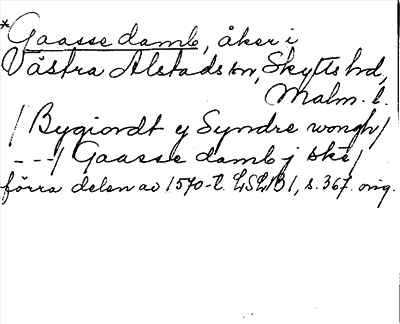 *Gaasse damb, åker i
Västra Alstads sn, Skytts hd,
Malm. l.
/Bygiordt y Syndre wongh/
---/Gaasse damb j ske/
förra delen av 1570-t. LSLJB 1, s. 367. orig.